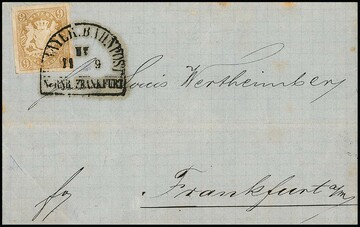 BAYER. BAHNPOST
IV
11 9
FRANKFURT
Louis Wertheimber,
Frankfurt a/m